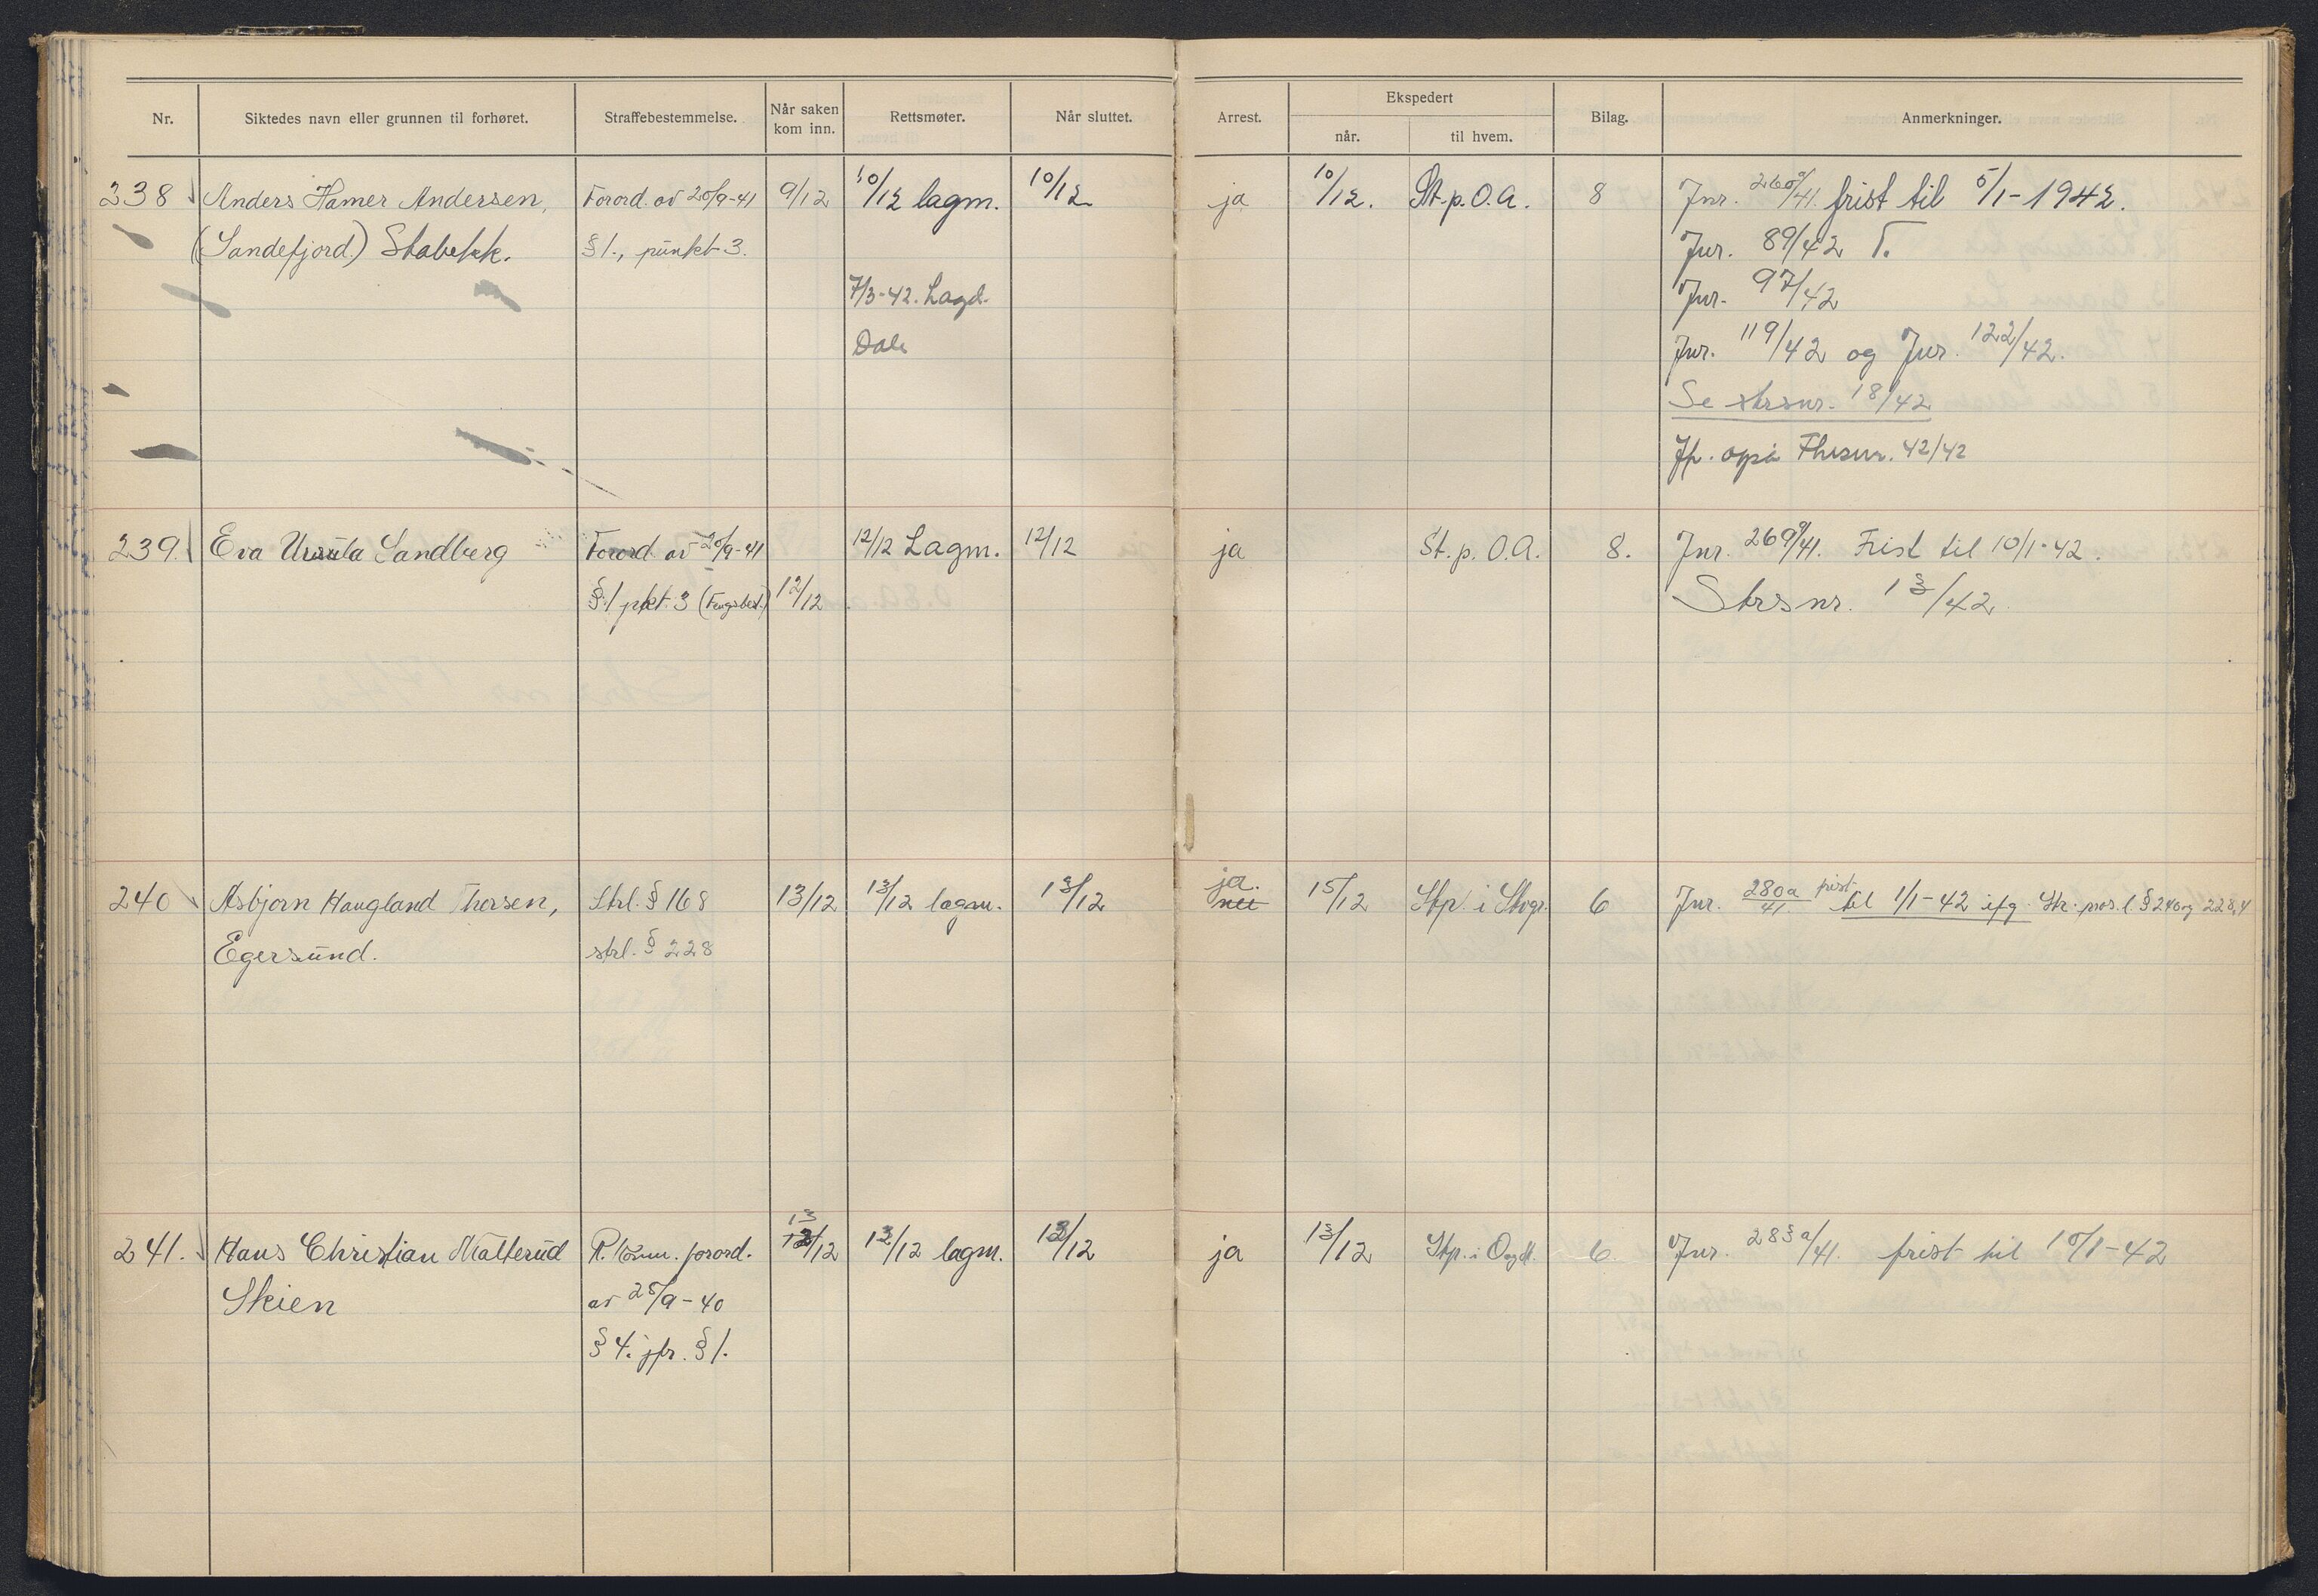 Nr.
Siktedes navn eller grunnen til forhøret.
Straffebestemmelse.
Når saken kom inn.
Rettsmøter.
Når sluttet.
Arrest.
Ekspedert
når.
til hvem.
Bilag.
Anmerkninger.
238 Anders Hamer Andersen, Forord. av 20/9-41 9/12 10/12 lagm. 10/12 ja 10/12. St.p.O.A. 8 Jnr. 260a/41. frist til 5/1-1942.
(Sandefjord) Stabekk. §1., punkt 3. Jnr. 89/42 T.
7/3-42. Lagd. Jnr. 97/42
Dale Jnr. 119/42 og Jnr. 122/42.
Se strsnr. 18/42
Jfr. også 42/42
239. Eva Ursula Sandberg Forord av 20/9-41 12/12 Lagm. 12/12 ja St.p.O.A. 8. Jnr. 269a/41. Frist til 10/1-42.
§.1 pkt. 3 12/12 Strsnr. 13/42.
240 Asbjørn Haugland Thorsen, Strl. § 168 13/12 13/12 lagm. 13/12 ja. nei 15/12 Stp. i Stvgr. 6 Jnr. 280a/41 frist til 1/1-42 ifg. Str.pros.l. § 240 og 228,4
Egersund. strl. § 228
241. Hans Christian Malterud R.Komm. forord. 13/12 13/12 lagm. 13/12 ja 13/12 Stp. i 6. Jnr. 283a/41. frist til 10/1-42
Skien av 25/9-40
§ 4. jfr. § 1.